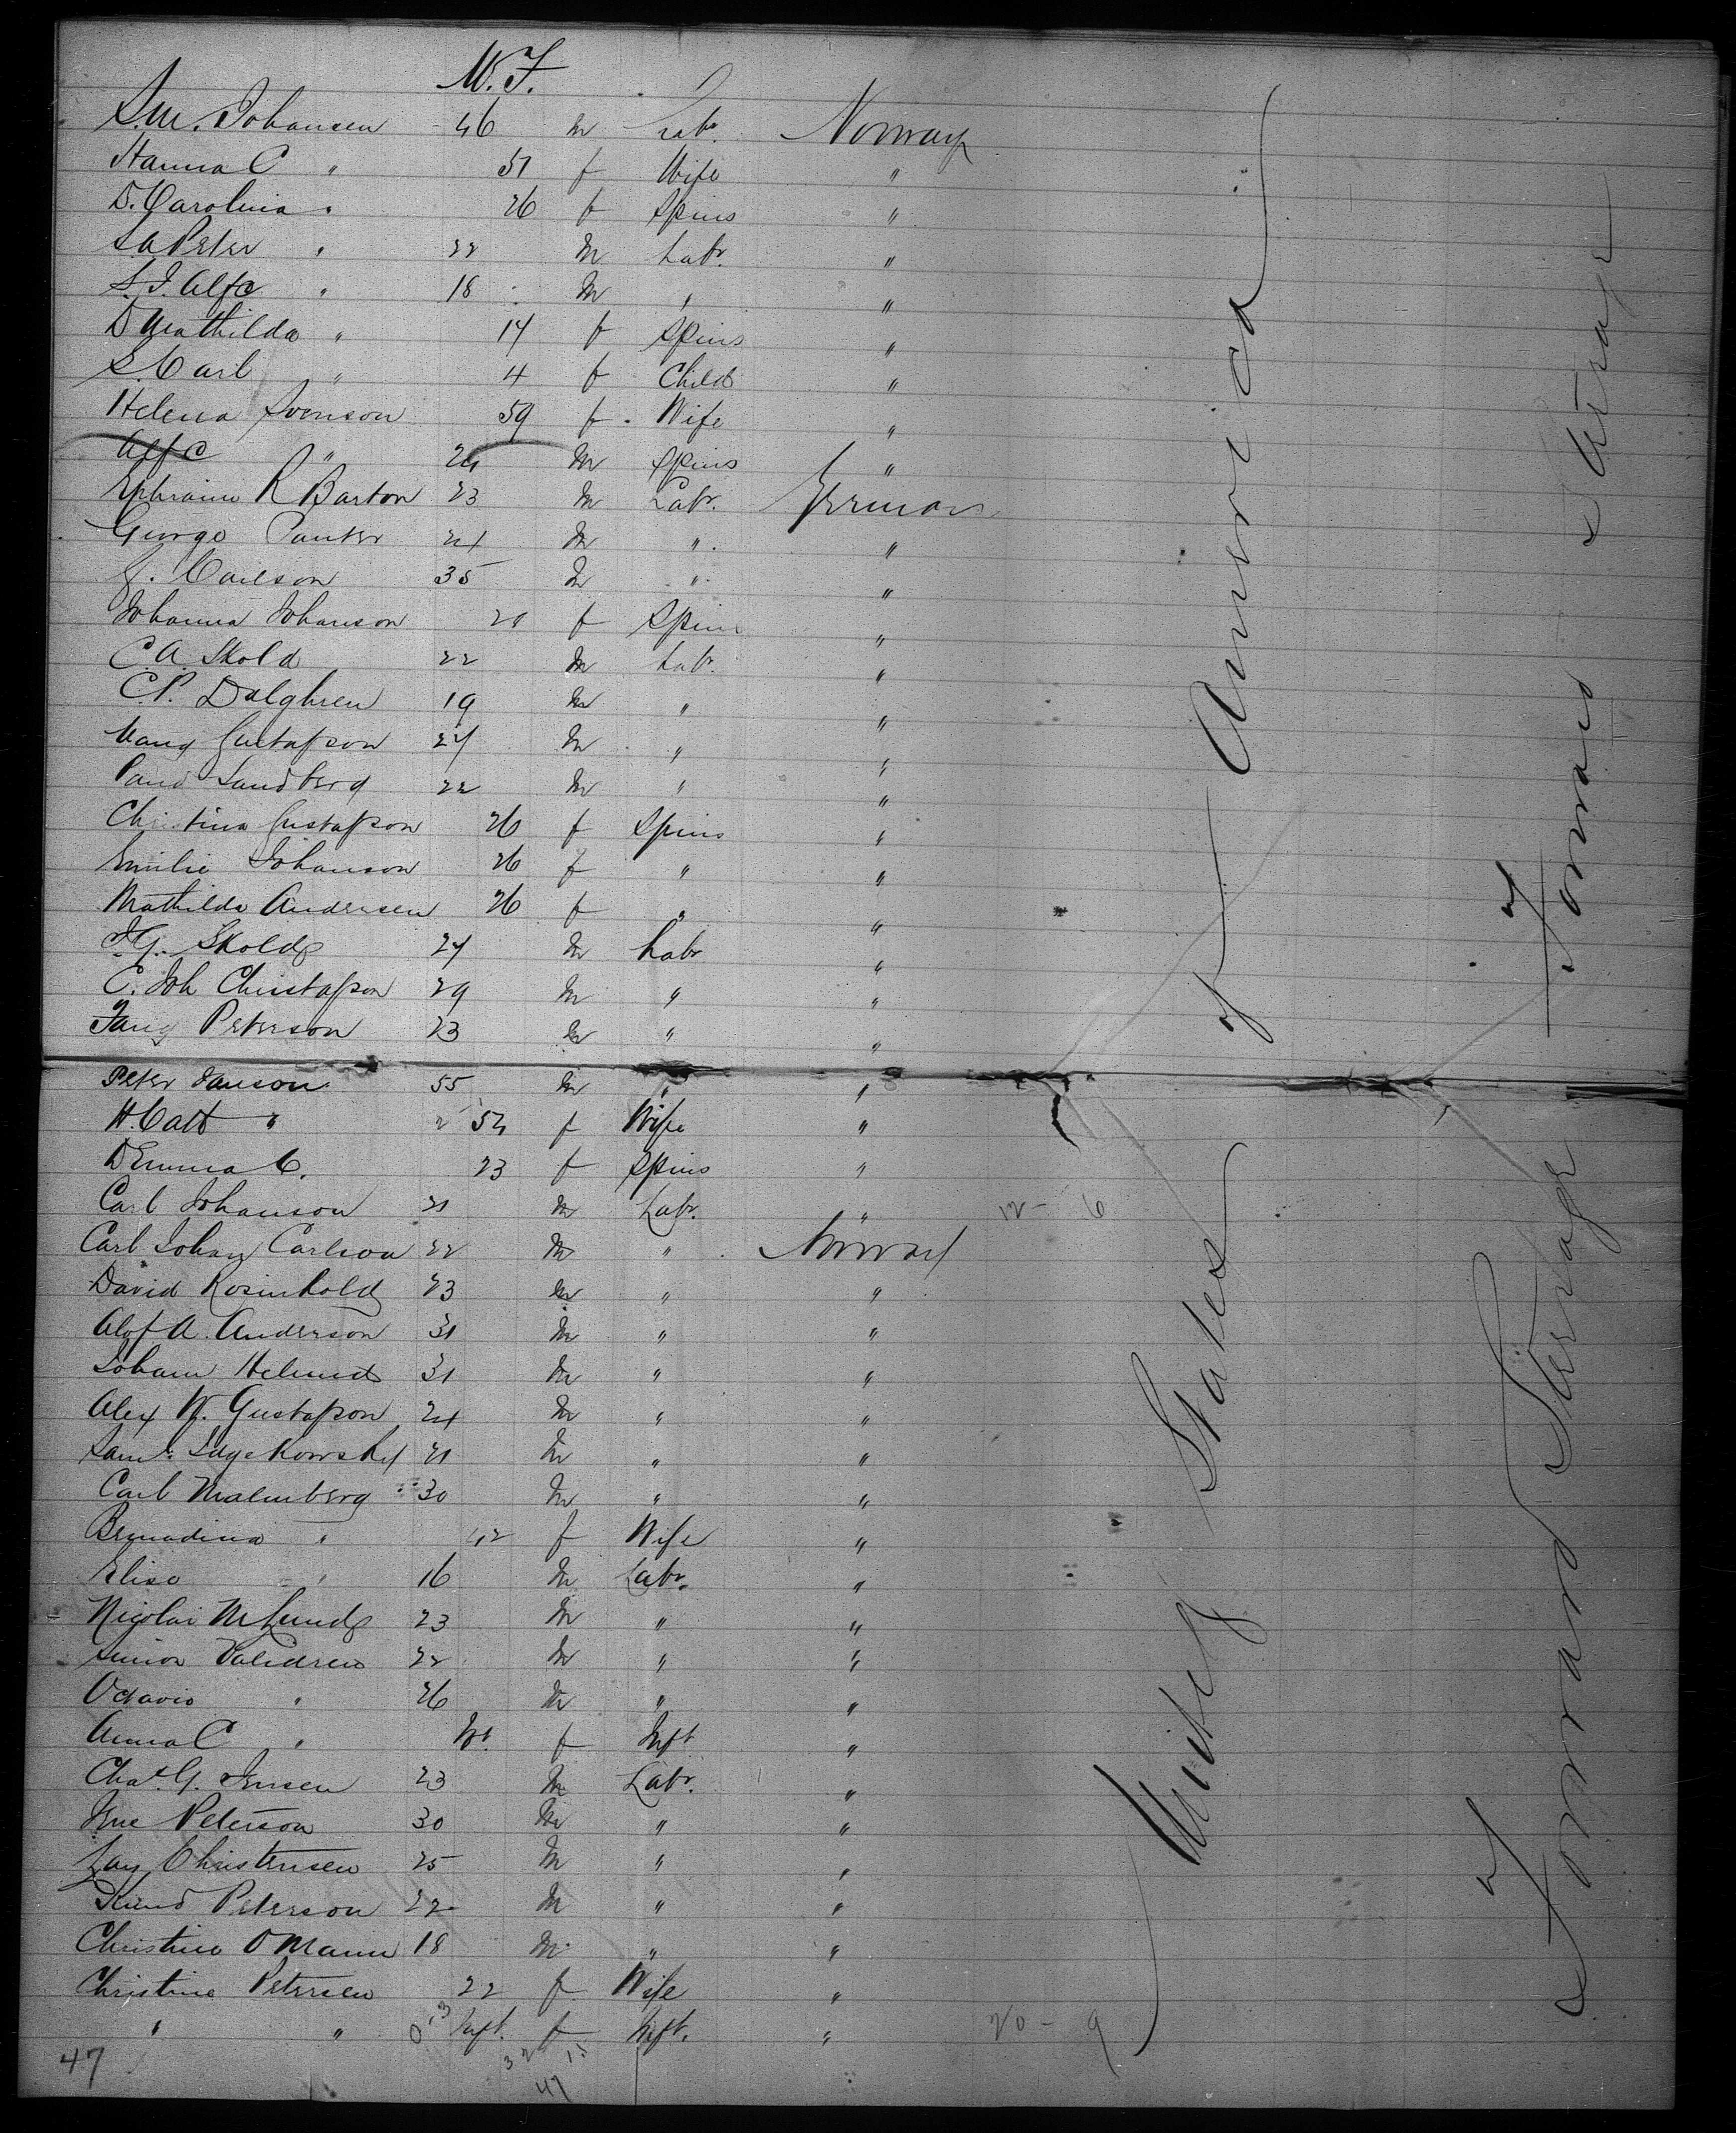 M. F.
S.M. Johansen 46 m Labr. Norway
Hanna C " 51 f Wife "
D. Carolina " 26 f Spins "
S A Peter " 22 m Labr. "
S. J. Alfc " 18 m " "
D Mathilda " 14 f Spins "
S Carl " 4 f Child "
Helena Svenson 59 f Wife "
Alfc " 24 m Spins "
Ephraim R Barton 23 m Labr. German
George Panter 24 m " "
J. Carlson 35 m " "
Johanna Johanson 21 f Spins "
C. A. Skold 22 m Labr. "
C. P. Dalghren 19 m " "
Gustafson 24 m " "
Sandberg 22 m " "
Christina Gustafson 26 f Spins "
Emilie Johanson 26 f " "
Mathilda Andersen 26 f " "
J. G. Skold 24 m Labr "
C. Joh Christafson 29 m " "
Peterson 23 m " "
Peter Janson 55 m " "
H. Cath " 54 f Wife "
D Emma C. 23 f Spins "
Carl Johanson 21 m Labr. " 12 - 6
Carl Johan Carlson 22 m " Norway
David Rosinhold 23 m " "
Alof A. Anderson 31 m " "
Johann Helmed 31 m " "
Alex W. Gustafson 24 m " "
Saml. 21 m " "
Carl Malmberg 30 m " "
Bernadina " 42 f Wife "
Elise " 16 m Labr. "
Nicolai M Lund 23 m " "
22 m " "
Octavio " 26 m " "
Anna C " f Inft "
Chas. G. Jensen 23 m Labr. "
Jene Peterson 30 m " "
Christensen 25 m " "
Knud Peterson 22 m " "
Christine O Mann 18 m " "
Christine Petersen 22 f Wife "
" " Inft. f Inft. " 20 - 9
47
32 15
47
United States of America
Forward Steerage
Forward Steerage